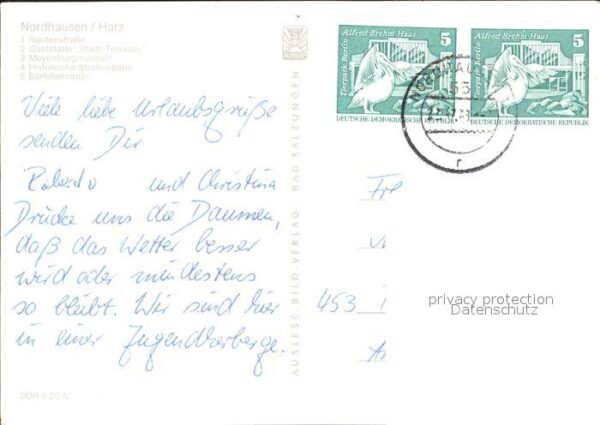 Nordhausen / Harz
1 Rautenstraße
2 Gaststätte „Stadt-Terrasse“
3 Meyenburgmuseum
4 Historische Straßenbahn
5 Barfüßerstraße
Viele liebe Urlaubsgrüße
senden Dir
Roberto und Christina
Drücke uns die Daumen,
daß das Wetter besser
wird oder mindestens
so bleibt. Wir sind hier
in einer Jugendherberge.
DDR 0,20 M
AUSLESE-BILD-VERLAG · BAD SALZUNGEN
Alfred Brehm Haus 5
Tierpark Berlin
DEUTSCHE DEMOKRATISCHE REPUBLIK
Alfred Brehm Haus 5
Tierpark Berlin
DEUTSCHE DEMOKRATISCHE REPUBLIK
55
r
Fre
453
privacy protection
Datenschutz